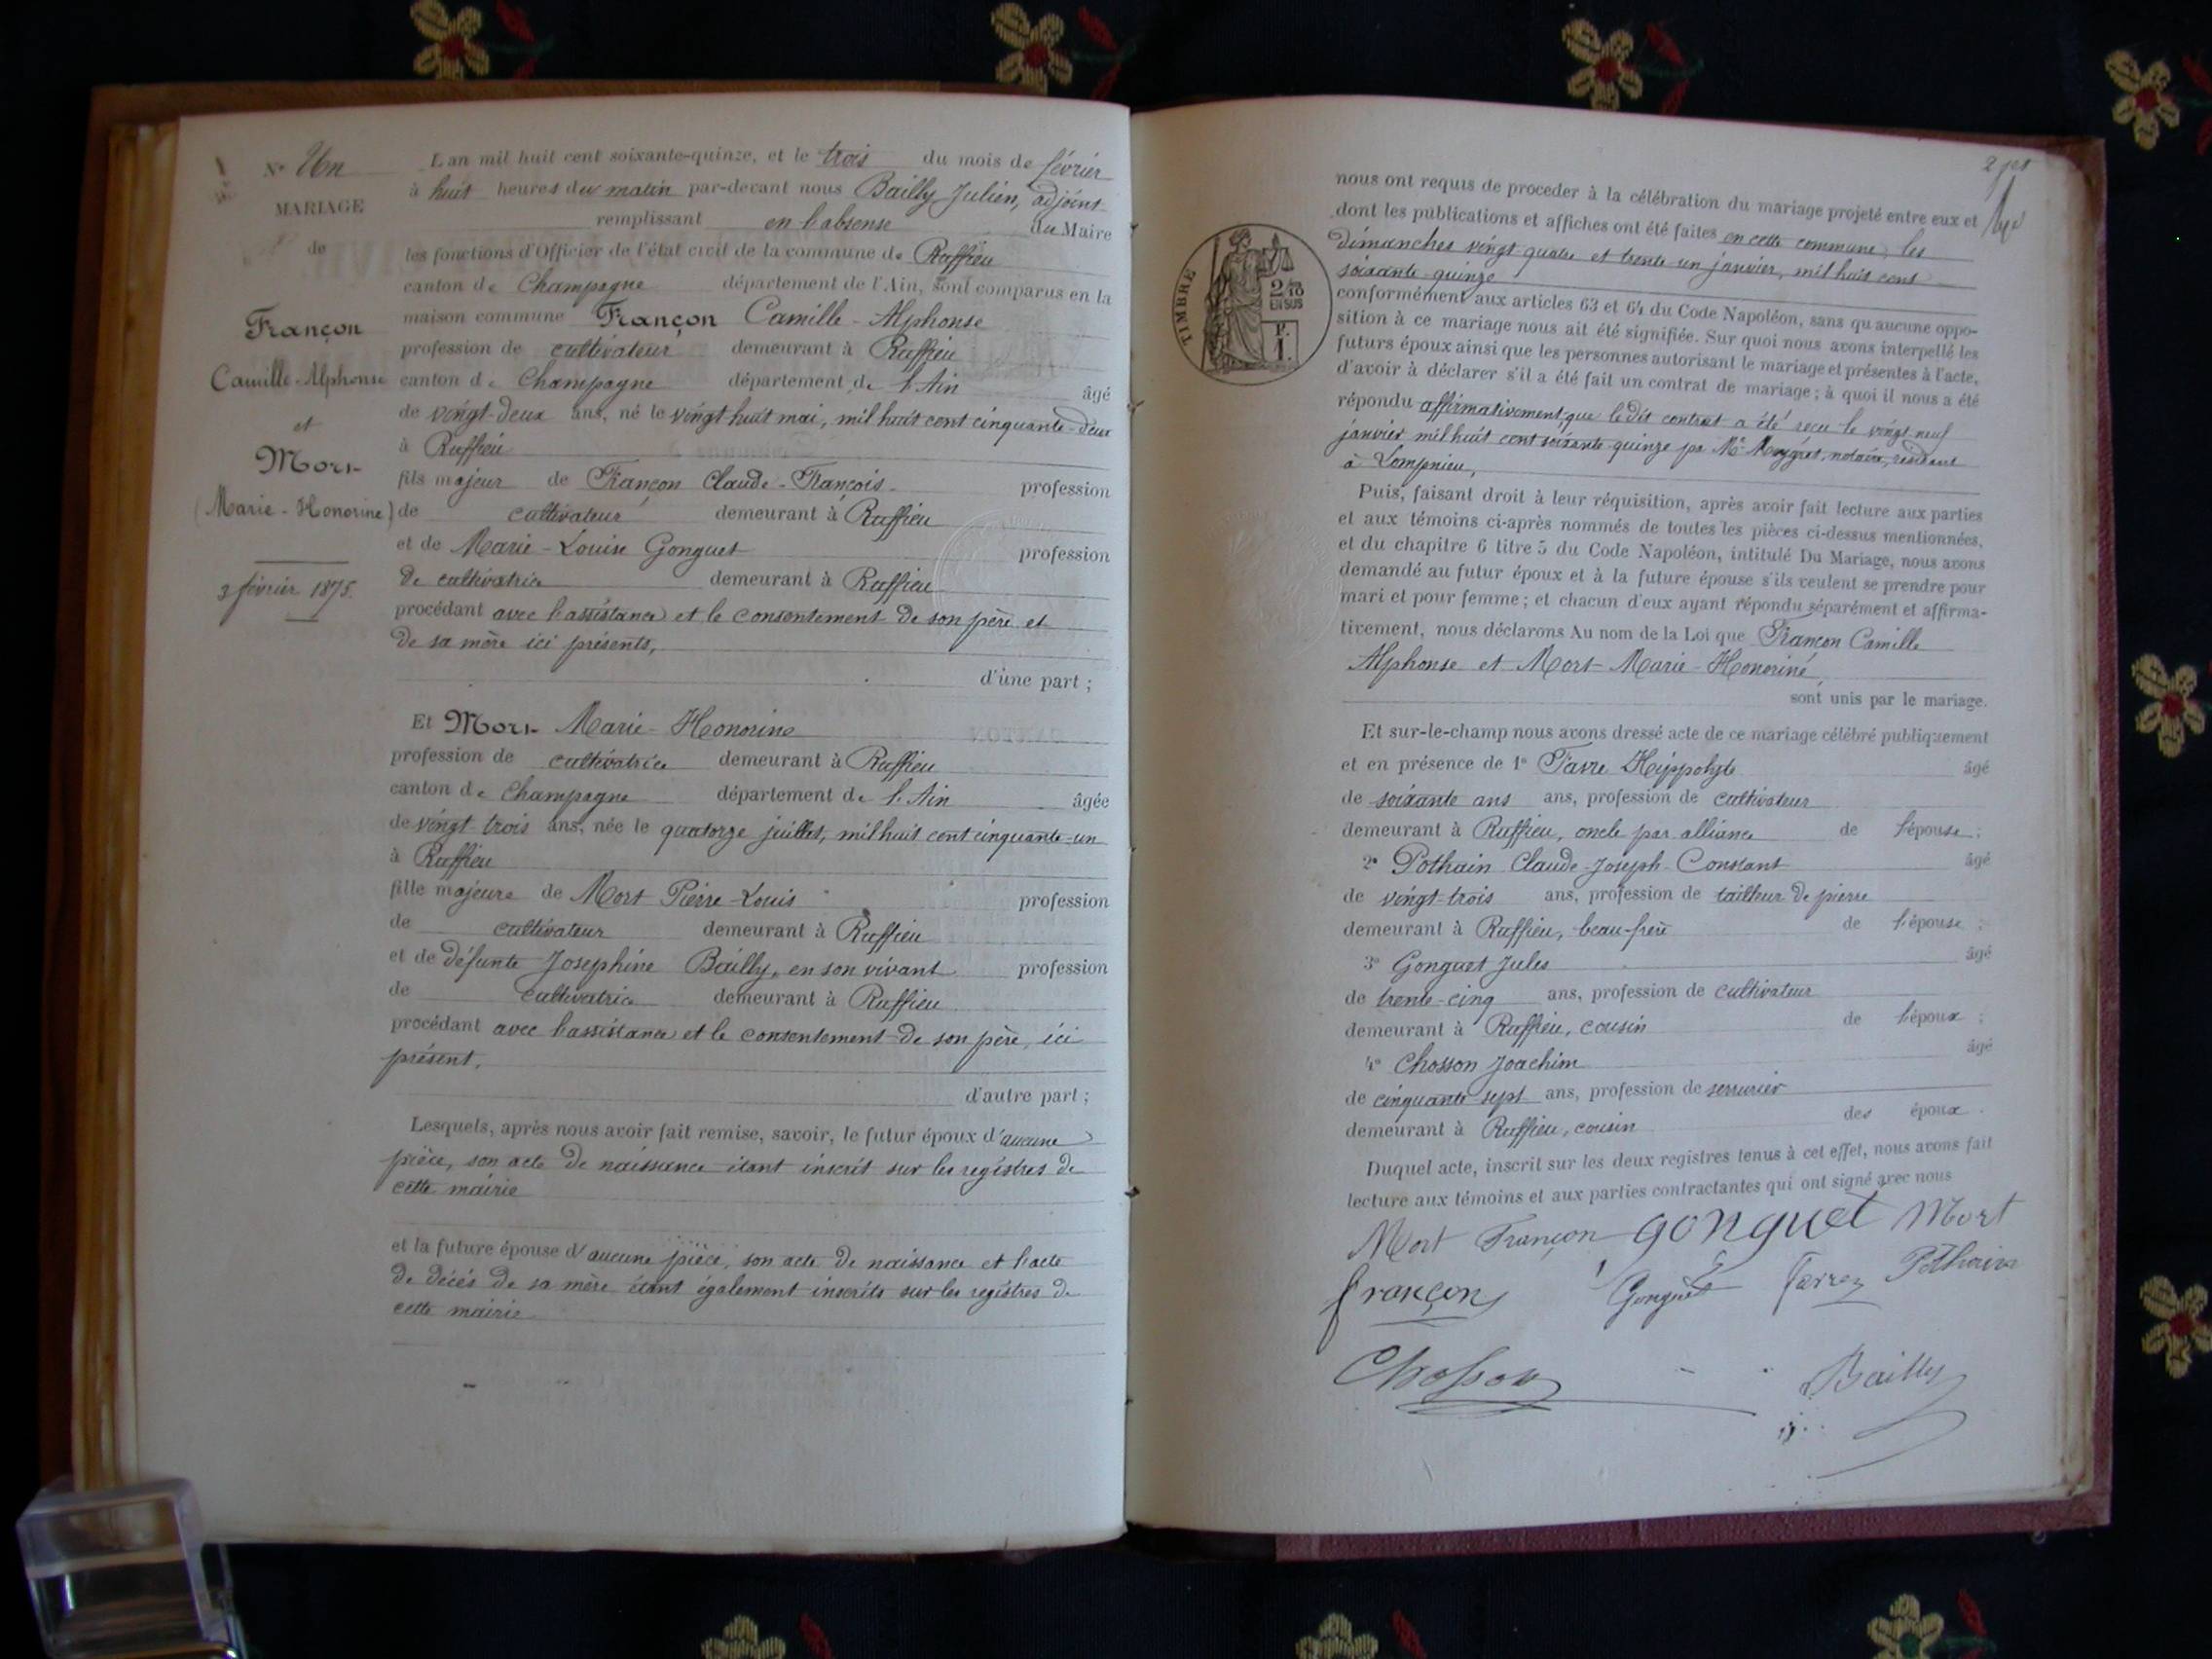 N° Un
MARIAGE
de
Françon
Camille-Alphonse
et
Mort
(Marie-Honorine)
3 février 1875.
L'an mil huit cent soixante-quinze, et le trois du mois de février
à huit heures du matin par-devant nous Bailly Julien, adjoint
remplissant en l'absense du Maire
les fonctions d'Officier de l'état civil de la commune de Ruffieu
canton de Champagne département de l'Ain, sont comparus en la
maison commune Françon Camille-Alphonse
profession de cultivateur demeurant à Ruffieu
canton de Champagne département de l'Ain âgé
de vingt-deux ans, né le vingt huit mai, mil huit cent cinquante-deux
à Ruffieu
fils majeur de Françon Claude-François profession
de cultivateur demeurant à Ruffieu
et de Marie-Louise Gonguet profession
de cultivatrice demeurant à Ruffieu
procédant avec l'assistance et le consentement de son père et
de sa mère ici présents,
d'une part ;
Et Mort Marie-Honorine
profession de cultivatrice demeurant à Ruffieu
canton de Champagne département de l'Ain âgée
de vingt-trois ans, née le quatorze juillet, mil huit cent cinquante-un
à Ruffieu
fille majeure de Mort Pierre-Louis profession
de cultivateur demeurant à Ruffieu
et de défunte Josephine Bailly, en son vivant profession
de cultivatrice demeurant à Ruffieu
procédant avec l'assistance et le consentement de son père, ici
présent,
d'autre part ;
Lesquels, après nous avoir fait remise, savoir, le futur époux d'aucune
pièce, son acte de naissance étant inscrit sur les registres de
cette mairie
et la future épouse d'aucune pièce, son acte de naissance et l'acte
de décès de sa mère étant également inscrits sur les registres de
cette mairie
TIMBRE
2/10
EN SUS
nous ont requis de proceder à la célébration du mariage projeté entre eux et
dont les publications et affiches ont été faites en cette commune, les
dimanches vingt quatre et trente un janvier, mil huit cent
soixante-quinze
conformément aux articles 63 et 64 du Code Napoléon, sans qu'aucune oppo-
sition à ce mariage nous ait été signifiée. Sur quoi nous avons interpellé les
futurs époux ainsi que les personnes autorisant le mariage et présentes à l'acte,
d'avoir à déclarer s'il a été fait un contrat de mariage ; à quoi il nous a été
répondu affirmativement, que le dit contrat a été recu le vingt neuf
janvier mil huit cent soixante quinze par Me notaire, résidant
à Lompnieu,
Puis, faisant droit à leur réquisition, après avoir fait lecture aux parties
et aux témoins ci-après nommés de toutes les pièces ci-dessus mentionnées,
et du chapitre 6 titre 5 du Code Napoléon, intitulé Du Mariage, nous avons
demandé au futur époux et à la future épouse s'ils veulent se prendre pour
mari et pour femme ; et chacun d'eux ayant répondu séparément et affirma-
tivement, nous déclarons Au nom de la Loi que Françon Camille
Alphonse et Mort Marie-Honorine,
sont unis par le mariage.
Et sur-le-champ nous avons dressé acte de ce mariage célébré publiquement
et en présence de 1° Favre Hippolyte âgé
de soixante ans ans, profession de cultivateur
demeurant à Ruffieu, oncle par alliance de l'épouse ;
2° Pothain Claude-Joseph-Constant âgé
de vingt-trois ans, profession de tailleur de pierre
demeurant à Ruffieu, beau-frère de l'épouse ;
3° Gonguet Jules âgé
de trente-cinq ans, profession de cultivateur
demeurant à Ruffieu, cousin de l'époux ;
4° Chosson Joachim âgé
de cinquante-sept ans, profession de serrurier
demeurant à Ruffieu, cousin des époux.
Duquel acte, inscrit sur les deux registres tenus à cet effet, nous avons fait
lecture aux témoins et aux parties contractantes qui ont signé avec nous
Mort Françon gonguet Mort
françon Gonguet Pothain
Chosson Bailly